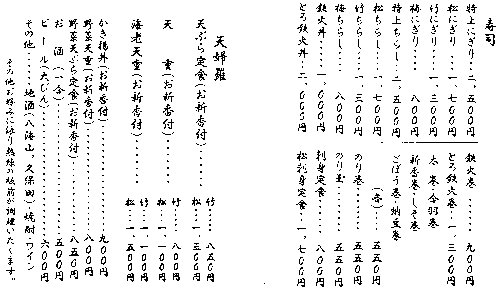 寿司
特上にぎり・二、五〇〇円
松にぎり・・一、七〇〇円
竹にぎり・・一、三〇〇円
梅にぎり・・・・八〇〇円
特上ちらし・二、五〇〇円
松ちらし・・一、七〇〇円
竹ちらし・・一、三〇〇円
梅ちらし・・・・八〇〇円
鉄火丼・・・一、七〇〇円
とろ鉄火丼・二、〇〇〇円
鉄火巻・・・・・九〇〇円
とろ鉄火巻・一、三〇〇円
太巻・合羽巻
新香巻・しそ巻
ごぼう巻・納豆巻
(各)・・・・五五〇円
のり巻・・・・・五五〇円
のり玉・・・・・五五〇円
刺身定食・・・・八〇〇円
松刺身定食・一、七〇〇円
天婦羅
天ぷら定食(お新香付)・・・・竹・・・八五〇円
松・一、三〇〇円
天重(お新香付)・・・・竹・一、一〇〇円
海老天重(お新香付)・・・・松・一、五〇〇円
かき揚丼(お新香付)・・・・九〇〇円
野菜天重(お新香付)・・・・八〇〇円
野菜天ぷら定食(お新香付)・・・八五〇円
お酒(一合)・・・・五〇〇円
ビール(大びん)・・・・六〇〇円
その他・・・・地酒(八海山、久保田)・焼酎・ワイン
その他お好みに依り熟練の板前が調理いたします。